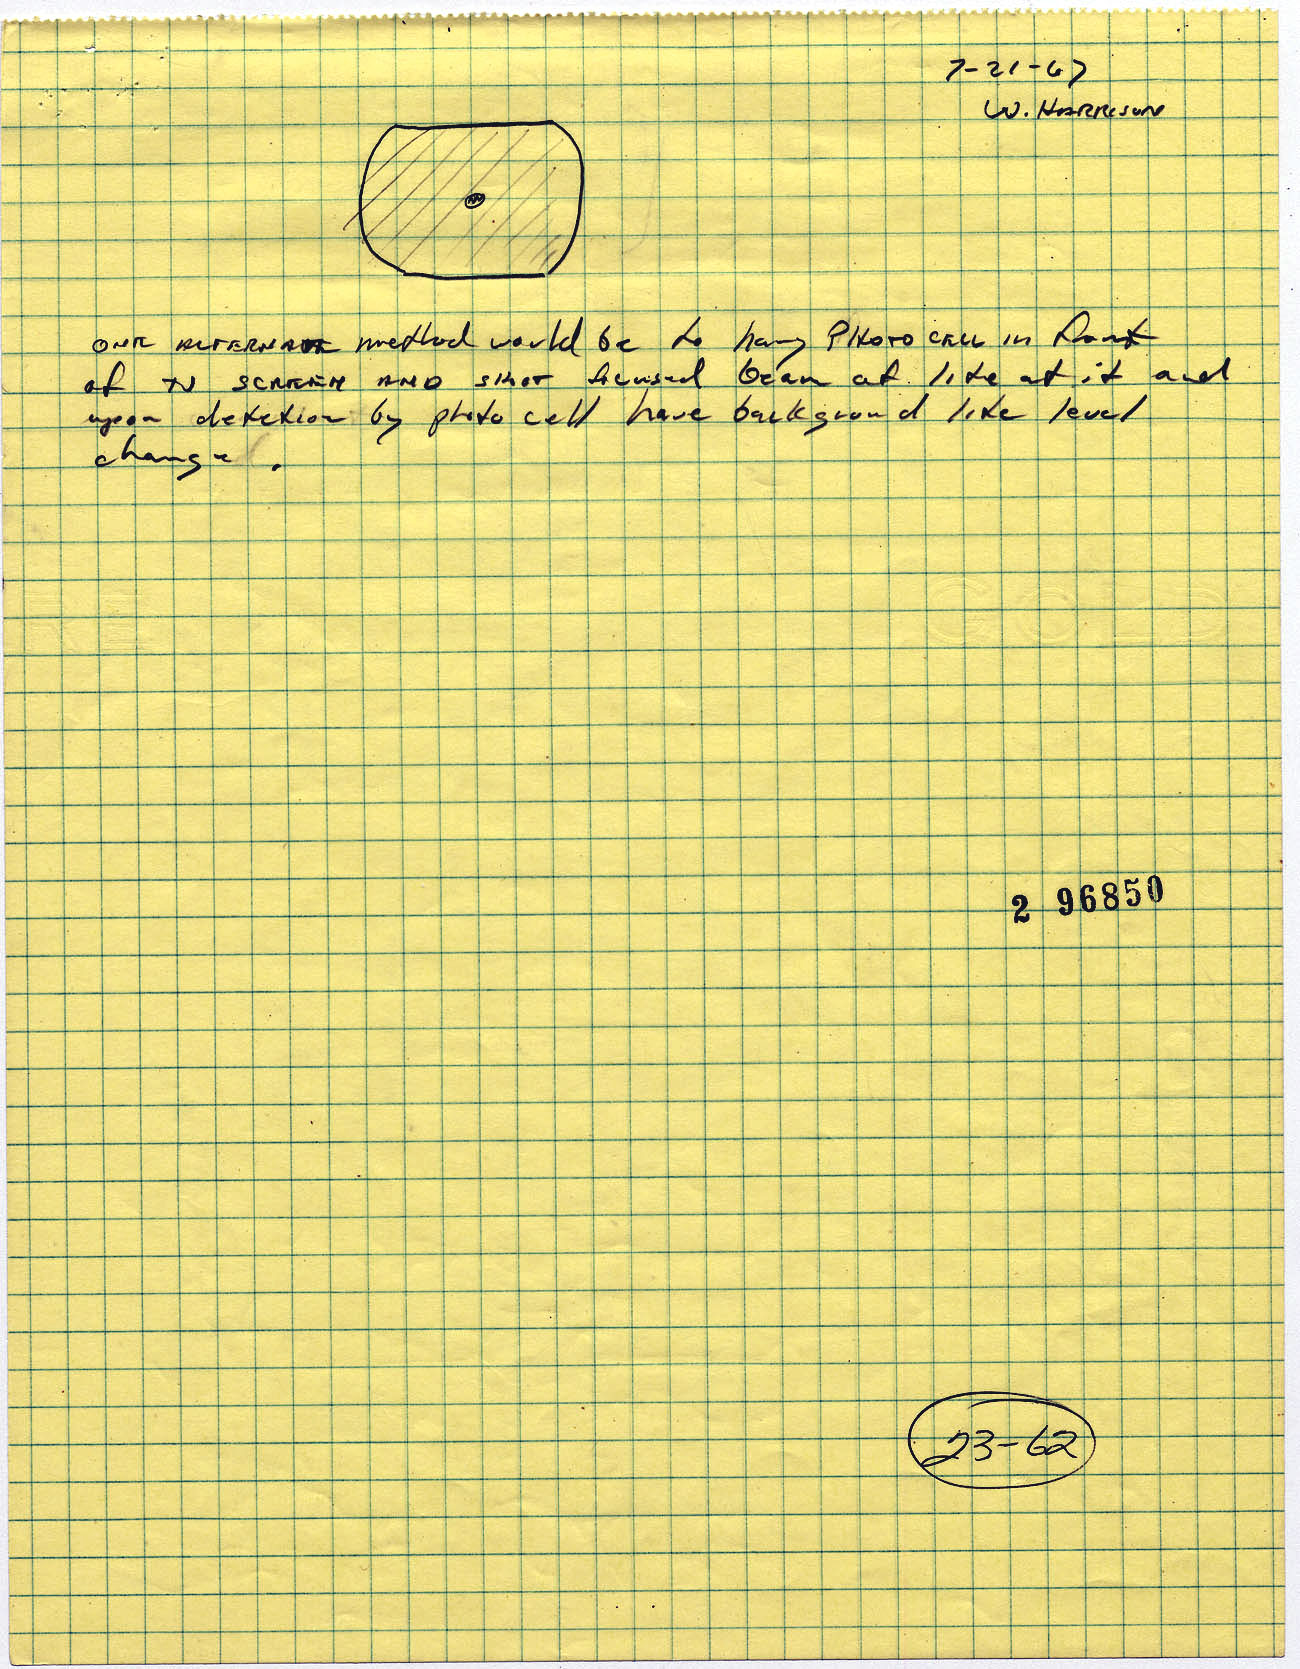 7-21-67
W. HARRISON
ONE ALTERNATE method would be to hang PHOTO CELL in front
of TV SCREEN AND SHOT focused beam of lite at it and
upon detetion by photo cell have background lite level
change.
2 96850
23-62